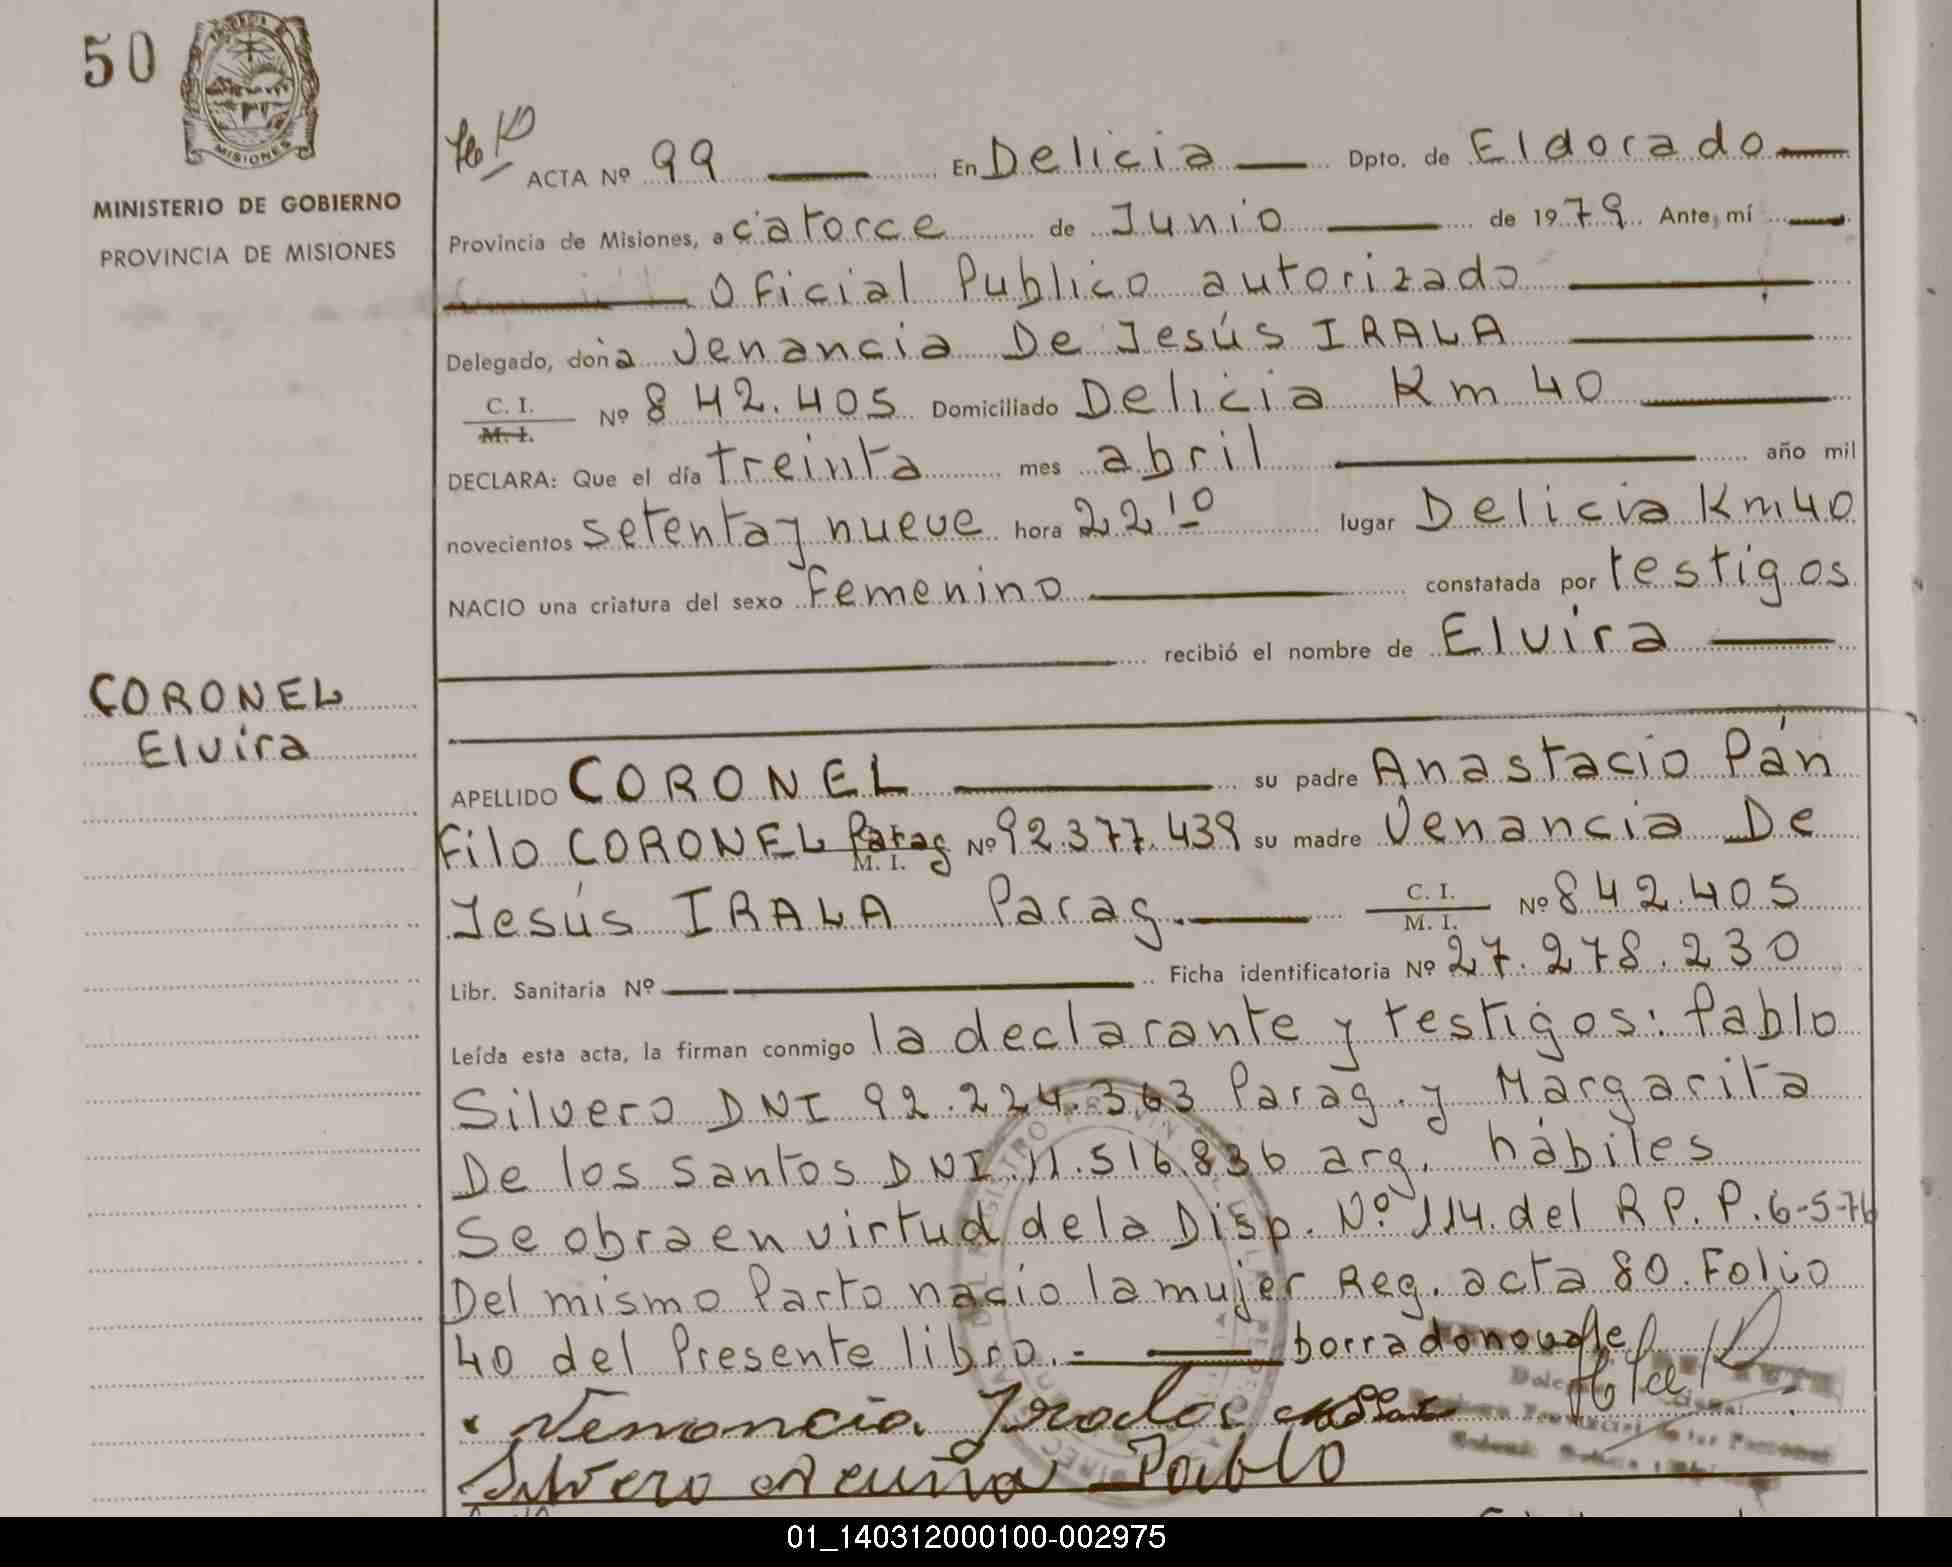 50
MISIONES
MINISTERIO DE GOBIERNO
PROVINCIA DE MISIONES
CORONEL
Elvira
ACTA Nº 99 En Delicia Dpto. de Eldorado
Provincia de Misiones, a catorce de Junio de 1979 Ante, mí
Oficial Publico autorizado
Delegado, doña Venancia De Jesús IRALA
C. I.
M. I. Nº 842.405 Domiciliado Delicia Km 40
DECLARA: Que el día treinta mes abril año mil
novecientos setenta y nueve hora 22 10 lugar Delicia Km 40
NACIO una criatura del sexo femenino constatada por testigos
recibió el nombre de Elvira
APELLIDO CORONEL su padre Anastacio Pán
filo CORONEL Parag M. I. Nº 92.377.439 su madre Venancia De
Jesús IRALA Parag. C. I. M. I. Nº 842.405
Libr. Sanitaria Nº Ficha identificatoria Nº 27.278.230
Leída esta acta, la firman conmigo la declarante y testigos: Pablo
Silvero DNI 92.224.363 Parag. y Margarita
De los Santos DNI 11.516.836 arg. hábiles
Se obra en virtud de la Disp. Nº 114. del R P. P. 6-5-76
Del mismo Parto nacio la mujer Reg. acta 80. Folio
40 del Presente libro.- borrado no vale
Venancia Irala de
Silvero Acuña Pablo
01_140312000100-002975